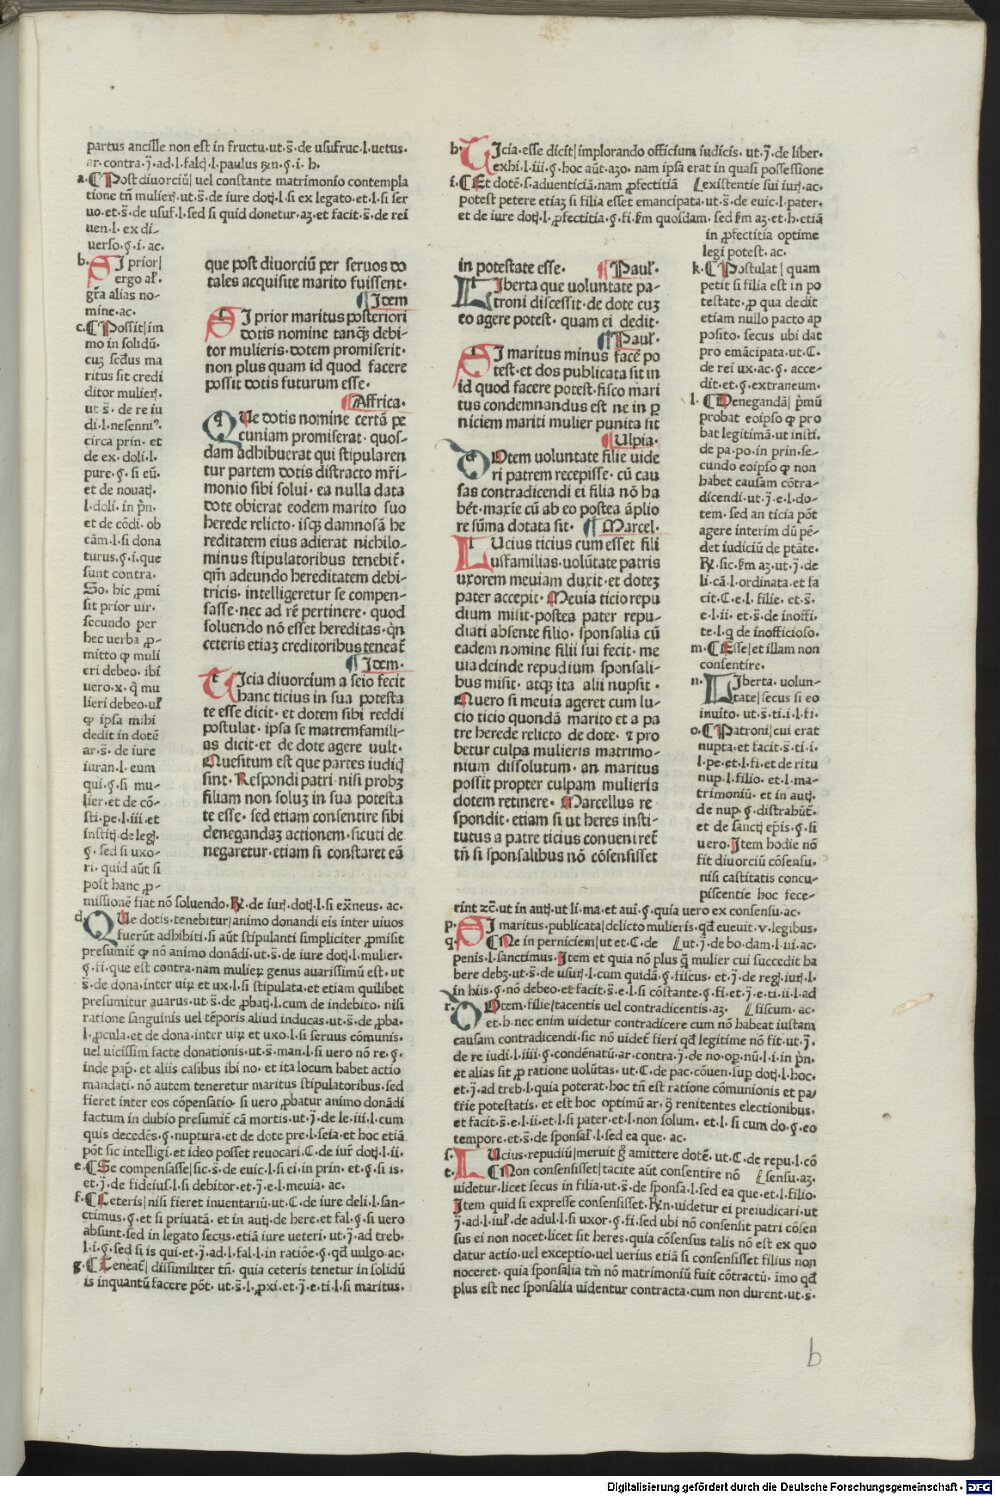 partus ancille non est in fructu.ut.s̄.de usufruc.l.uetus.
ar.contra.j̄.ad.l.falcį.l.paulus ꝶn.ꞔ.i.h.
a.¶Post divorciū|uel constante matrimonio contempla
tione tn̄ mulierꝭ.ut.s̄.de iure dotꝭ.l.si ex legato.et.l.si ser
uo.et.s̄.de usuf.l.sed si quid donetur.aꝫ.et facit.s̄.de rei
uen.l.ex di-
uerso.ꞔ.i.ac.
b.SI prior|
ergo al̓.
gr̄a alias no-
mine.ac.
c.¶Possit|im
mo in solidū.
cuꝫ scd̄us ma
ritus sit credi
ditor mulierꝭ.
ut s̄.de re iu
di.l.nesenniꝰ.
circa prin.et
de ex.doli.l.
pure.ꞔ.si eū.
et de nouatꝭ.
l.doli.in pn̄.
et de cōdi.ob
cām.l.si dona
turus.ꞔ.i.que
sunt contra.
So.hic ꝓmi
sit prior uir.
secundo per
hec uerba ꝓ-
mitto ꝙ muli
eri debeo.ibi
uero.x.q̄ mu
lieri debeo.ul̓
ꝙ ipsa mihi
dedit in dotē
ar.s̄.de iure
iuran.l.eum
qui.ꞔ.si mu-
lier.et de cō-
sti.pe.l.iii.et
institꝭ.de legꝭ.
ꞔ.sed si uxo-
ri.quid aūt si
post hanc ꝓ-
missionē fiat nō soluendo.ꝶ.de iurꝭ.dotꝭ.l.si ex̄neus.ac.
d.QUe dotis.tenebitur|animo donandi eis inter uiuos
fuerūt adhibiti.si aūt stipulanti simpliciter ꝓmisit
presumit̄ ꝙ nō animo donādi.ut.s̄.de iure dotꝭ.l.mulier.
ꞔ.fi.que est contra.nam mulieꝝ genus auarissimū est.ut
s̄.de dona.inter uiꝝ et ux.l.si stipulata.et etiam quilibet
presumitur auarus.ut.s̄.de ꝓbatꝭ.l.cum de indebito.nisi
ratione sanguinis uel tēporis aliud inducas.ut.s̄.de ꝓba.
l.ꝓcula.et de dona.inter uiꝝ et uxo.l.si seruus cōmunis.
uel uicissim facte donationis.ut.s̄.man.l.si uero nō re.ꞔ.
inde papꝭ.et aliis casibus ibi no.et ita locum habet actio
mandati.nō autem teneretur maritus stipulatoribus.sed
fieret inter eos cōpensatio.si uero ꝓbatur animo donādi
factum in dubio presumit̄ cā mortis.ut.j̄.de le.iii.l.cum
quis decedēs.ꞔ.nuptura.et de dote pre.l.seia.et hoc etiā
pōt sic intelligi.et ideo posset reuocari.C.de iur̓ dotꝭ.l.ii.
e.¶Se compensasse|sic.s̄.de euic.l.si ei.in prin.et.ꞔ.si is.
et.j̄.de fideius.l.si debitor.et.j̄.e.l.meuia.ac.
f.¶Ceteris|nisi fieret inuentariū.ut.C.de iure deli.l.san-
ctimus.ꞔ.et si priuatā.et in autꝭ.de here.et fal.ꞔ.si uero
absunt.sed in legato secus.etiā iure ueteri.ut.j̄.ad treb.
l.i.ꞔ.sed si is qui.et.j̄.ad.l.fal.l.in ratiōe.ꞔ.qd̄ uulgo.ac.
g.¶Teneat̄|dissimiliter tn̄.quia ceteris tenetur in solidū
is inquantū facere pōt.ut.s̄.l.ꝓxi.et.j̄.e.ti.l.si maritus.
que post divorciū per seruos do
tales acquisite marito fuissent.
¶Idem
SI prior maritus posteriori
dotis nomine tanqꝫ debi-
tor mulieris.dotem promiserit.
non plus quam id quod facere
possit dotis futurum esse.
¶Affrica.
QUe dotis nomine certā pe
cuniam promiserat.quos-
dam adhibuerat qui stipularen
tur partem dotis distracto mr̄i-
monio sibi solui.ea nulla data
dote obierat eodem marito suo
herede relicto.isqꝫ damnosā he
reditatem eius adierat nichilo-
minus stipulatoribus tenebit̄.
qm̄ adeundo hereditatem debi-
tricis.intelligeretur se compen-
sasse.nec ad rē pertinere.quod
soluendo nō esset hereditas.qn̄
ceteris etiaꝫ creditoribus teneat̄
¶Idem.
TIcia divorcium a seio fecit
hanc ticius in sua potesta
te esse dicit.et dotem sibi reddi
postulat.ipsa se matremfamili-
as dicit.et de dote agere uult.
Quesitum est que partes iudicꝭ
sint.Respondi patri.nisi probꝫ
filiam non soluꝫ in sua potesta
te esse.sed etiam consentire sibi
denegandaꝫ actionem.sicuti de
negaretur.etiam si constaret eā
h.TIcia.esse dicit|implorando officium iudicis.ut.j̄.de liber.
exhi.l.iii.ꞔ.hoc aūt.azo.nam ipsa erat in quasi possessione
i.¶Et dotē.s.aduenticiā.nam ꝓfectitiā [existentie sui iurꝭ.ac.
potest petere etiaꝫ si filia esset emancipata.ut.s̄.de euic.l.pater.
et de iure dotꝭ.l.ꝓfectitia.ꞔ.fi.k̄m quosdam.sed k̄m aꝫ.et.h.etiā
in ꝓfectitia optime
legi potest.ac.
k.¶Postulat|quam
petit si filia est in po
testate.ꝓ qua dedit
etiam nullo pacto ap
posito.secus ubi dat
pro emācipata.ut.C.
de rei ux.ac.ꞔ.acce-
dit.et.ꞔ.extraneum.
l.¶Denegandā|pr̄mū
probat eoipso ꝙ pro
bat legitimā.ut insti.
de pa.po.in prin.se-
cundo eoipso ꝙ non
habet causam cōtra-
dicendi.ut.j̄.e.l.do-
tem.sed an ticia pōt
agere interim dū pē-
det iudiciū de ptāte.
ꝶ.sic.k̄m aꝫ.ut.j̄.de
li.cā.l.ordinata.et fa
cit.C.e.l.filie.et.s̄.
e.l.ii.et.s̄.de inoffi-
te.l.q de inofficioso.
m.¶Esse|et illam non
consentire.
n.LIberta.uolun-
tate|secus si eo
inuito.ut.s̄.ti.i.l.fi.
o.¶Patroni|cui erat
nupta.et facit.s̄.ti.i.
l.pe.et.l.fi.et de ritu
nup.l.filio.et.l.ma-
trimoniū.et in autꝭ.
de nup.ꞔ.distrahūt̄.
et de sanctꝭ ep̄is.ꞔ.si
uero.Item hodie nō
fit divorciū cōsensu.
nisi castitatis concu-
piscentie hoc fece-
rint ⁊c̄.ut in autꝭ.ut li.ma.et aui.ꞔ.quia uero ex consensu.ac.
p.SI maritus.publicata|delicto mulieris.qd̄ euenit.v.legibus.
q.¶Ne in perniciem|ut et.C.de [ut.j̄.de bo.dam.l.iii.ac.
penis.l.sanctimus.Item et quia nō plus q̄ mulier cui succedit ha
bere debꝫ.ut.s̄.de usurꝭ.l.cum quidā.ꞔ.fiscus.et.j̄.de regꝭ.iurꝭ.l.
in hiis.ꞔ.nō debeo.et facit.s̄.e.l.si cōstante.ꞔ.fi.et.j̄.e.ti.ii.l.ad
r.DOtem.filie|tacentis uel contradicentis.aꝫ. [fiscum.ac.
et.h.nec enim uidetur contradicere cum nō habeat iustam
causam contradicendi.sic nō uidet̄ fieri qd̄ legitime nō fit.ut.j̄.
de re iudi.l.iiii.ꞔ.condēnatū.ar.contra.j̄.de no.opꝭ.nū.l.i.in pn̄.
et alias sit ꝓ ratione uolūtas.ut.C.de pac.cōuen.suꝑ dotꝭ.l.hoc.
et.j̄.ad treb.l.quia poterat.hoc tn̄ est ratione cōmunionis et pa/
tr̄ie potestatis.et est hoc optimū ar.ꝯ renitentes electionibus.
et facit.s̄.e.l.ii.et.l.si pater.et.l.non solum.et.l.si cum do.ꞔ.eo
tempore.et.s̄.de sponsal̓.l.sed ea que.ac.
s.LUcius.repudiū|meruit g̓ amittere dotē.ut.C.de repu.l.cō
t.¶Non consensisset|tacite aūt consentire nō [sensu.aꝫ.
uidetur.licet secus in filia.ut.s̄.de sponsa.l.sed ea que.et.l.filio.
Item quid si expresse consensisset.ꝶn.uidetur ei preiudicari.ut
j̄.ad.l.iul̓.de adul.l.si uxor.ꞔ.fi.sed ubi nō consensit patri cōsen
sus ei non nocet.licet sit heres.quia cōsensus talis nō est ex quo
datur actio.uel exceptio.uel uerius etiā si consensisset filius non
noceret.quia sponsalia tm̄ nō matrimoniū fuit cōtractū.īmo qd̄
plus est nec sponsalia uidentur contracta.cum non durent.ut.s̄.
in potestate esse. ¶Paul̓.
LIberta que uoluntate pa-
troni discessit.de dote cuꝫ
eo agere potest.quam ei dedit.
¶Paul̓.
SI maritus minus facē po
test.et dos publicata sit in
id quod facere potest.fisco mari
tus condemnandus est ne in ꝑ
niciem mariti mulier punita sit
¶Ulpia.
DOtem uoluntate filie uide
ri patrem recepisse.cū cau
sas contradicendi ei filia nō ha
bēt.maxīe cū ab eo postea āplio
re sūma dotata sit. ¶Marcel.
LUcius ticius cum esset fili
usfamilias.uolūtate patris
uxorem meuiam duxit.et doteꝫ
pater accepit.Meuia ticio repu
dium misit.postea pater repu-
diati absente filio.sponsalia cū
eadem nomine filii sui fecit.me
uia deinde repudium sponsali-
bus misit.atqꝫ ita alii nupsit.
Quero si meuia ageret cum lu-
cio ticio quondā marito et a pa
tre herede relicto de dote.⁊ pro
betur culpa mulieris matrimo-
nium dissolutum.an maritus
possit propter culpam mulieris
dotem retinere.Marcellus re
spondit.etiam si ut heres insti-
tutus a patre ticius conueniret̄
tn̄ si sponsalibus nō cōsensisset
b
Digitalisierung gefördert durch die Deutsche Forschungsgemeinschaft - DFG